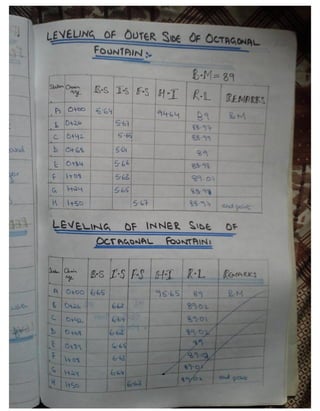 LEVELING OF OUTER SIDE OF OCTAGONAL
FOUNTAIN:-
B.M = 89
Station Chainage B.S I.S F.S H.I R.L REMARKS
A 0+00 5.64 94.64 89 B.M
B 0+24 5.67 88.97
C 0+42 5.65 88.99
D 0+68 89
E 0+84 5.66 88.98
F 1+08 5.63 89.01
G 1+24 5.65
H 1+50 5.67 88.97 end point
LEVELING OF INNER SIDE OF
OCTAGONAL FOUNTAIN:
Chainage B.S I.S F.S H.I R.L REMARKS
A 0+00 6.65 95.65 89 B.M
B 6.63 89.02
C 0+42 6.64 89.01
D 6.63 89.02
E 6.65 89
F 1+08 6.63
G 1+24 6.64 89.01
H 1+50 6.63 89.02 end point